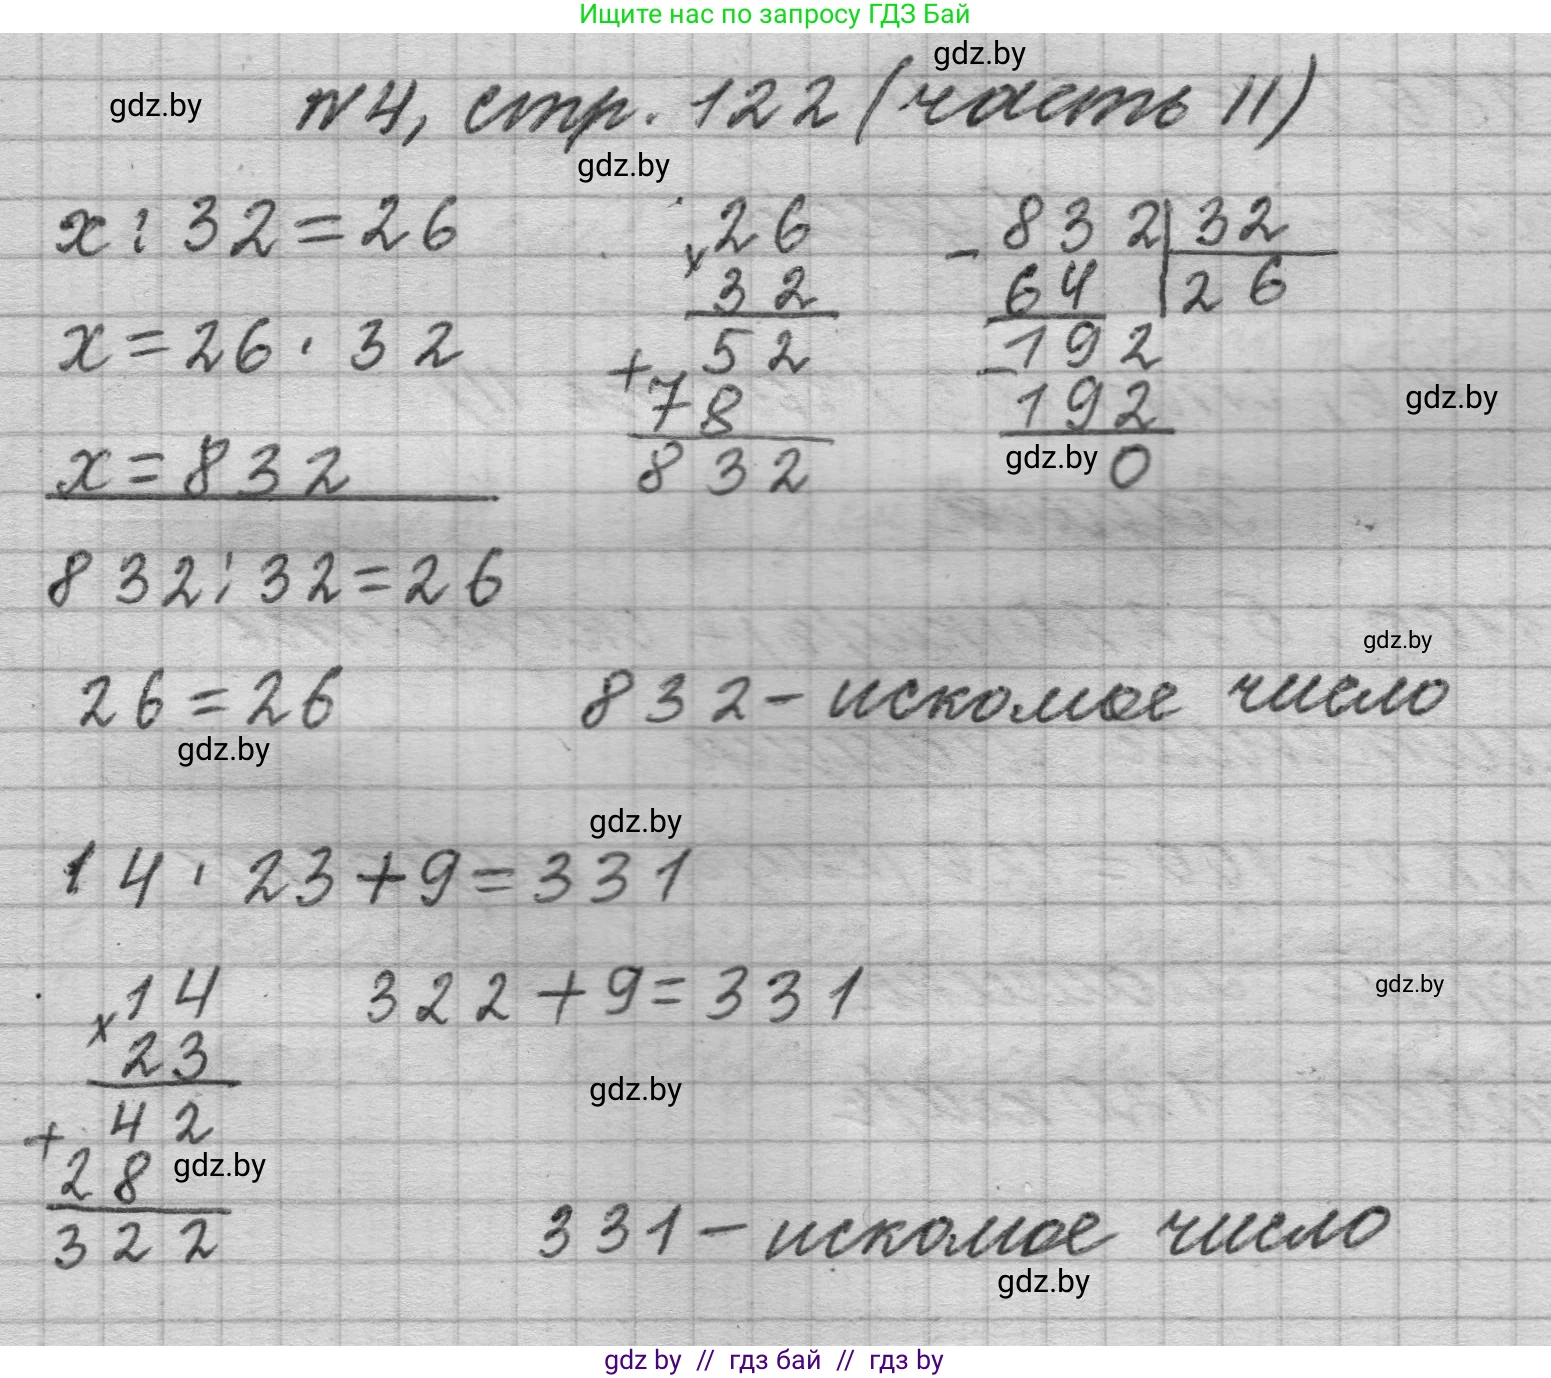 Ищите нас по запросу ГДЗ Бай
gdz.by
gdz.by
№4, стр. 122 (часть II)
gdz.by
x : 32 = 26
x = 26 · 32
x = 832
832 : 32 = 26
26 = 26
gdz.by
× 26
32
+ 52
78
832
- 832 | 32
64 26
- 192
192
gdz.by 0
gdz.by
gdz.by
832 - искомое число
gdz.by
14 · 23 + 9 = 331
× 14
23
+ 42
28 gdz.by
322
322 + 9 = 331
gdz.by
gdz.by
331 - искомое число
gdz.by
gdz by // гдз бай // гдз by